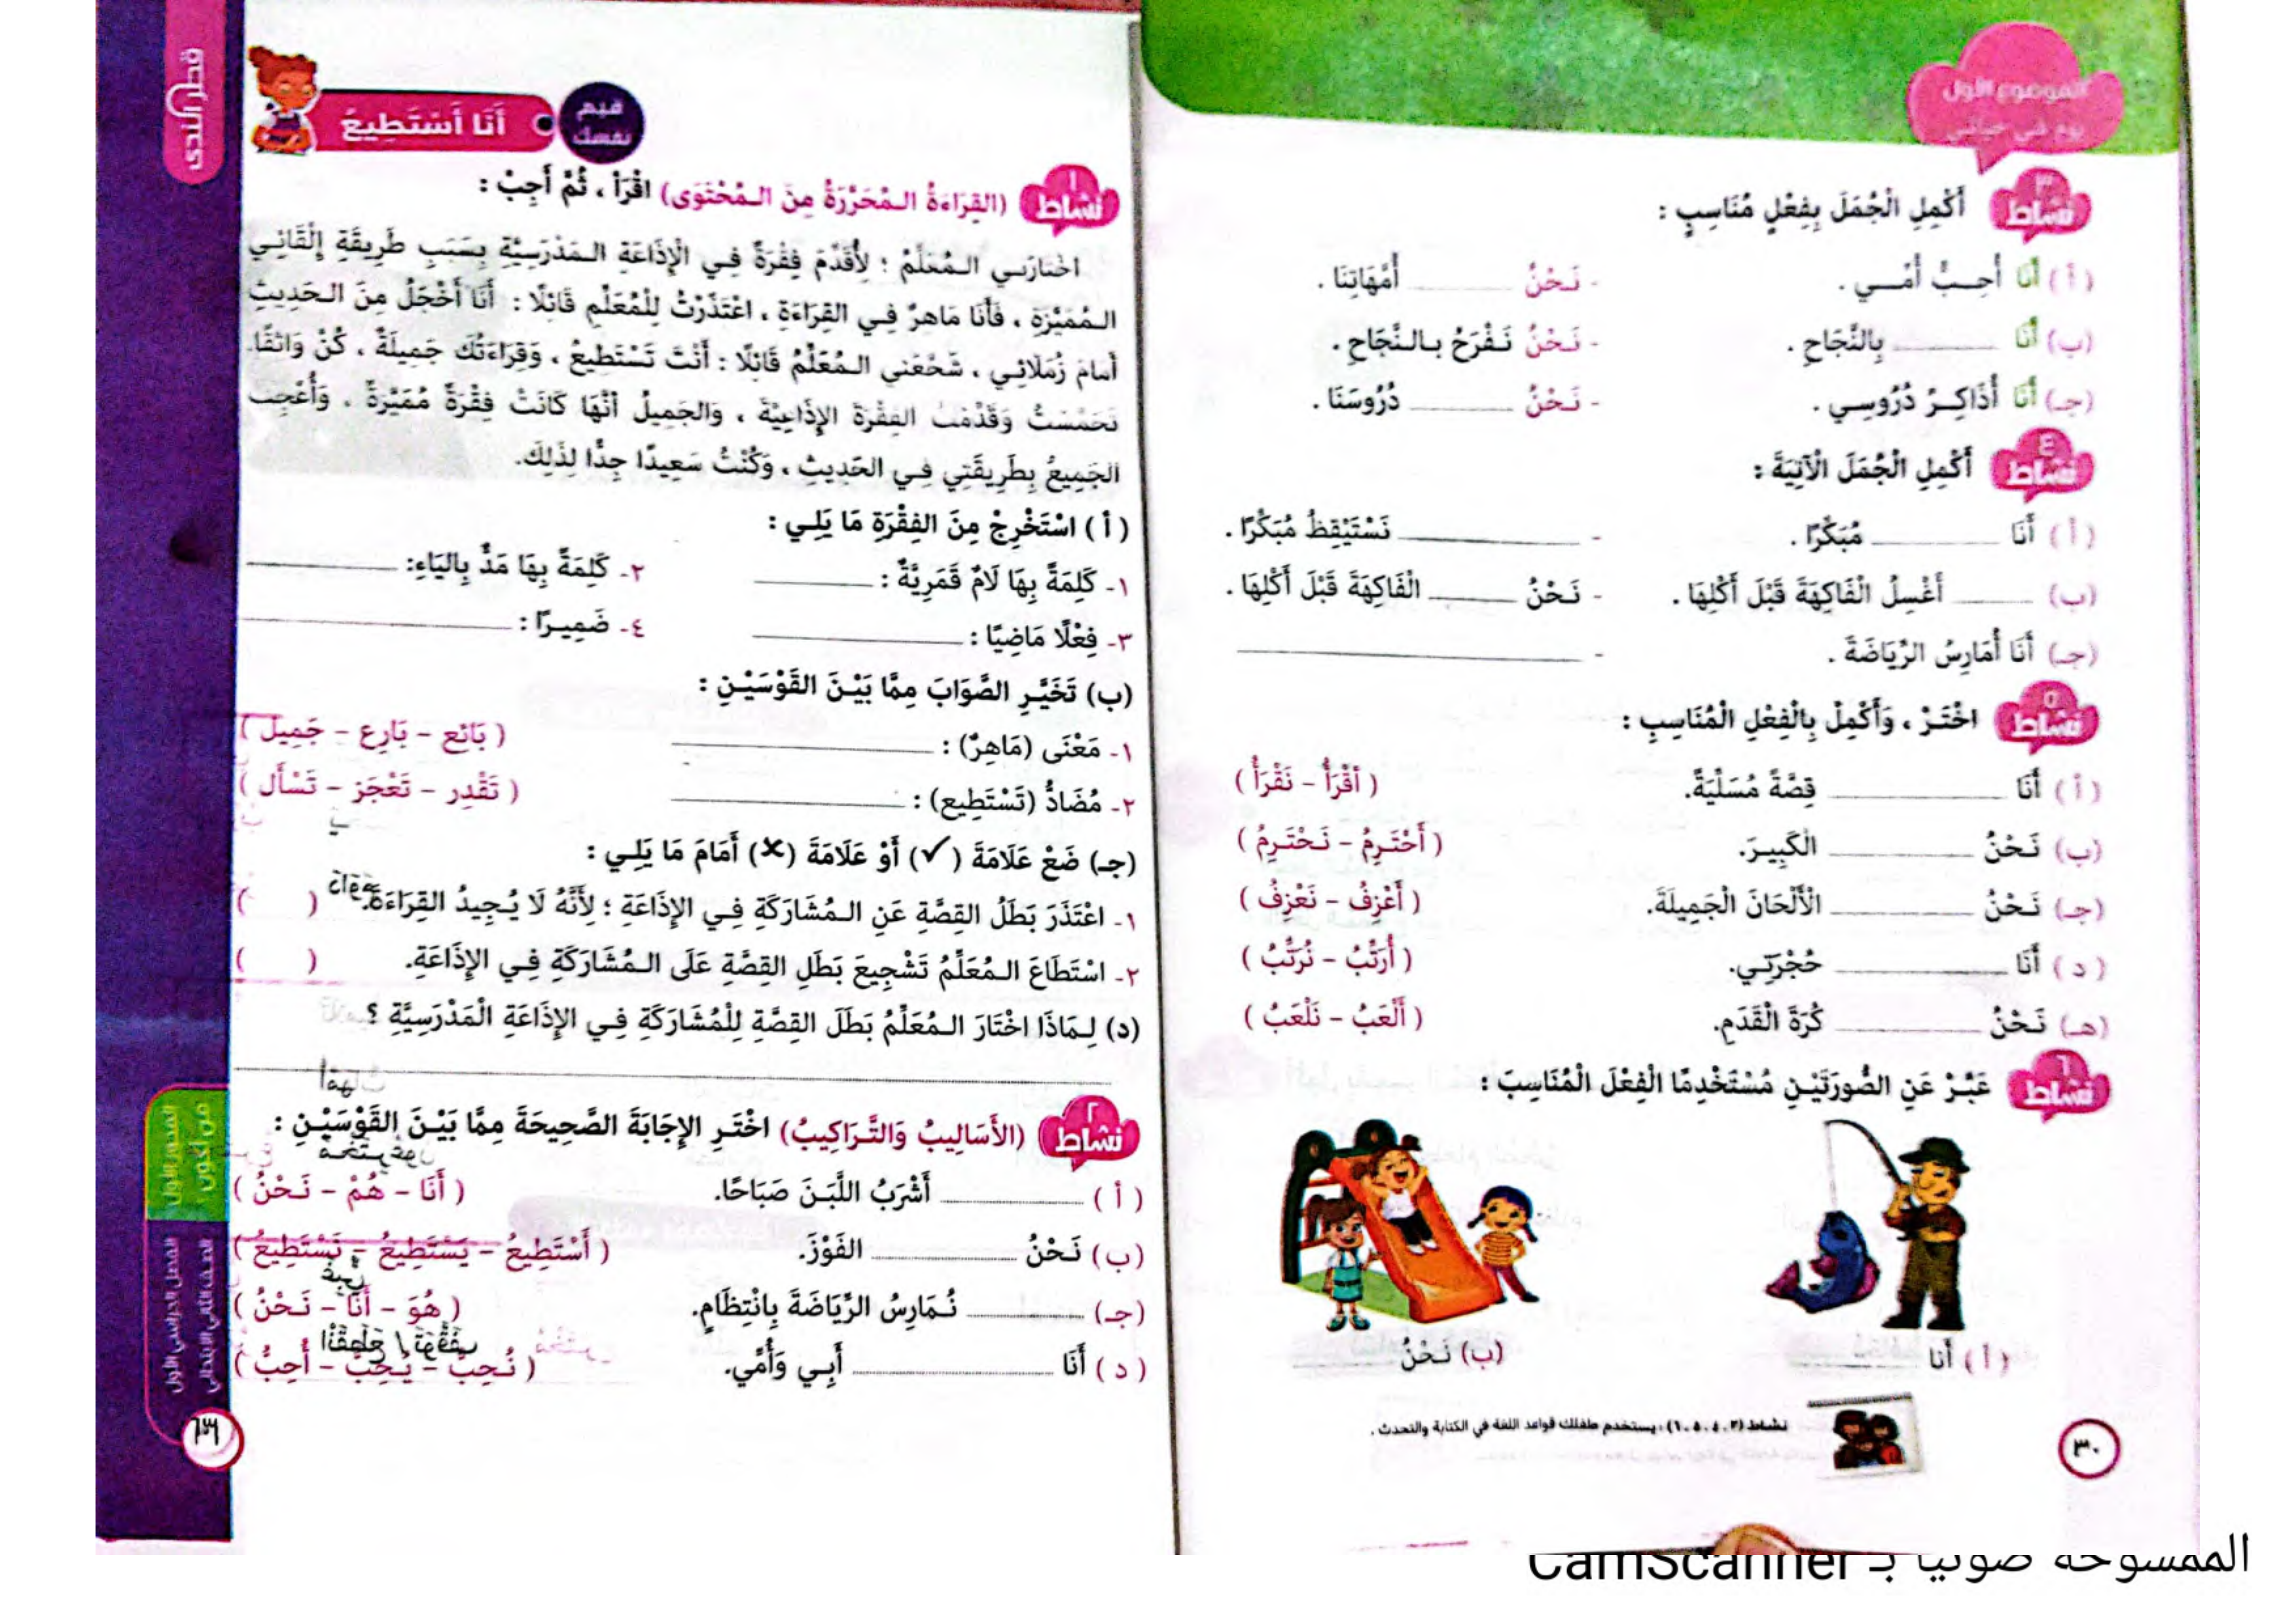 الموضوع الأول
يوم في حياتي
نشاط ٣ أَكْمِلِ الْجُمَلَ بِفِعْلٍ مُنَاسِبٍ :
(أ) أَنَا أُحِبُّ أُمِّي . - نَحْنُ ______ أُمَّهَاتِنَا .
(ب) أَنَا ______ بِالنَّجَاحِ . - نَحْنُ نَفْرَحُ بِالنَّجَاحِ .
(جـ) أَنَا أُذَاكِرُ دُرُوسِي . - نَحْنُ ______ دُرُوسَنَا .
نشاط ٤ أَكْمِلِ الْجُمَلَ الْآتِيَةَ :
(أ) أَنَا ______ مُبَكِّرًا . - ______ نَسْتَيْقِظُ مُبَكِّرًا .
(ب) ______ أَغْسِلُ الْفَاكِهَةَ قَبْلَ أَكْلِهَا . - نَحْنُ ______ الْفَاكِهَةَ قَبْلَ أَكْلِهَا .
(جـ) أَنَا أُمَارِسُ الرِّيَاضَةَ . - ______
نشاط ٥ اخْتَرْ ، وَأَكْمِلْ بِالْفِعْلِ الْمُنَاسِبِ :
(أ) أَنَا ______ قِصَّةً مُسَلِّيَةً. ( أَقْرَأُ - نَقْرَأُ )
(ب) نَحْنُ ______ الْكَبِيرَ. ( أَحْتَرِمُ - نَحْتَرِمُ )
(جـ) نَحْنُ ______ الْأَلْحَانَ الْجَمِيلَةَ. ( أَعْزِفُ - نَعْزِفُ )
(د) أَنَا ______ حُجْرَتِي. ( أُرَتِّبُ - نُرَتِّبُ )
(هـ) نَحْنُ ______ كُرَةَ الْقَدَمِ. ( أَلْعَبُ - نَلْعَبُ )
نشاط ٦ عَبِّرْ عَنِ الصُّورَتَيْنِ مُسْتَخْدِمًا الْفِعْلَ الْمُنَاسِبَ :
(أ) أَنَا ______ (ب) نَحْنُ ______
نشاط (٣، ٤، ٥، ٦) : يستخدم طفلك قواعد اللغة في الكتابة والتحدث .
٣٠
قطر الندى
قيم نفسك
أَنَا أَسْتَطِيعُ
نشاط ١ (القِرَاءَةُ الـمُحَرَّرَةُ مِنَ الـمُحْتَوَى) اقْرَأْ ، ثُمَّ أَجِبْ :
اخْتَارَنِي الـمُعَلِّمُ ؛ لِأُقَدِّمَ فِقْرَةً فِي الْإِذَاعَةِ الـمَدْرَسِيَّةِ بِسَبَبِ طَرِيقَةِ إِلْقَائِي
الـمُمَيَّزَةِ ، فَأَنَا مَاهِرٌ فِي القِرَاءَةِ ، اعْتَذَرْتُ لِلْمُعَلِّمِ قَائِلًا : أَنَا أَخْجَلُ مِنَ الـحَدِيثِ
أَمَامَ زُمَلَائِي ، شَجَّعَنِي الـمُعَلِّمُ قَائِلًا : أَنْتَ تَسْتَطِيعُ ، وَقِرَاءَتُكَ جَمِيلَةٌ ، كُنْ وَاثِقًا.
تَحَمَّسْتُ وَقَدَّمْتُ الفِقْرَةَ الإِذَاعِيَّةَ ، وَالجَمِيلُ أَنَّهَا كَانَتْ فِقْرَةً مُمَيَّزَةً ، وَأُعْجِبَ
الجَمِيعُ بِطَرِيقَتِي فِي الحَدِيثِ ، وَكُنْتُ سَعِيدًا جِدًّا لِذَلِكَ.
(أ) اسْتَخْرِجْ مِنَ الفِقْرَةِ مَا يَلِي :
١- كَلِمَةً بِهَا لَامٌ قَمَرِيَّةٌ : ______ ٢- كَلِمَةً بِهَا مَدٌّ بِاليَاءِ: ______
٣- فِعْلًا مَاضِيًا : ______ ٤- ضَمِيرًا : ______
(ب) تَخَيَّرِ الصَّوَابَ مِمَّا بَيْنَ القَوْسَيْنِ :
١- مَعْنَى (مَاهِرٌ) : ______ ( بَائِع - بَارِع - جَمِيل )
٢- مُضَادُّ (تَسْتَطِيع) : ______ ( تَقْدِر - تَعْجَز - تَسْأَل )
(جـ) ضَعْ عَلَامَةَ (✓) أَوْ عَلَامَةَ (✗) أَمَامَ مَا يَلِي :
١- اعْتَذَرَ بَطَلُ القِصَّةِ عَنِ الـمُشَارَكَةِ فِي الإِذَاعَةِ ؛ لِأَنَّهُ لَا يُجِيدُ القِرَاءَةَ. ( )
٢- اسْتَطَاعَ الـمُعَلِّمُ تَشْجِيعَ بَطَلِ القِصَّةِ عَلَى الـمُشَارَكَةِ فِي الإِذَاعَةِ. ( )
(د) لِـمَاذَا اخْتَارَ الـمُعَلِّمُ بَطَلَ القِصَّةِ لِلْمُشَارَكَةِ فِي الإِذَاعَةِ الْمَدْرَسِيَّةِ ؟
نشاط ٢ (الأَسَالِيبُ وَالتَّرَاكِيبُ) اخْتَرِ الإِجَابَةَ الصَّحِيحَةَ مِمَّا بَيْنَ القَوْسَيْنِ :
(أ) ______ أَشْرَبُ اللَّبَنَ صَبَاحًا. ( أَنَا - هُمْ - نَحْنُ )
(ب) نَحْنُ ______ الفَوْزَ. ( أَسْتَطِيعُ - يَسْتَطِيعُ - نَسْتَطِيعُ )
(جـ) ______ نُمَارِسُ الرِّيَاضَةَ بِانْتِظَامٍ. ( هُوَ - أَنَا - نَحْنُ )
(د) أَنَا ______ أَبِي وَأُمِّي. ( نُحِبُّ - يُحِبُّ - أُحِبُّ )
المحور الأول
من أكون
الفصل الدراسي الأول
الصف الثاني الابتدائي
الممسوحة ضوئيا بـ CamScanner